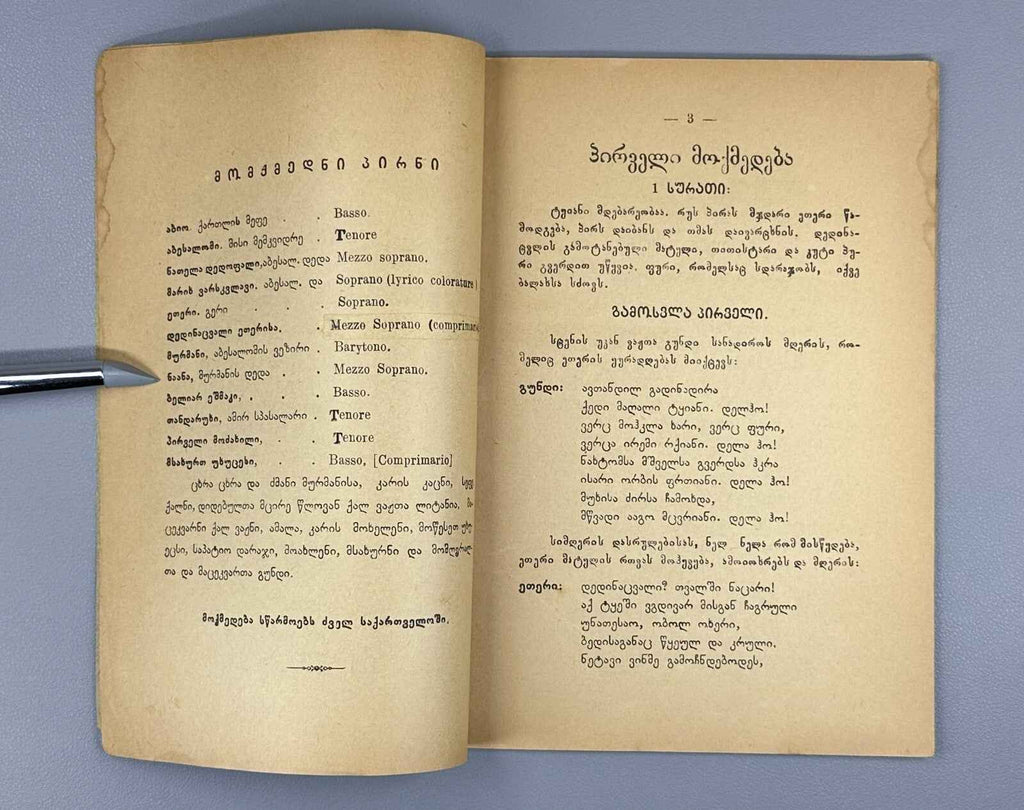 მომქმედნი პირნი
აბიო. ქართლის მეფე . . Basso.
აბესალომი. მისი მემკვიდრე . Tenore
ნათელა დედოფალი, აბესალ. დედა Mezzo soprano.
მარიხ ვარსკვლავი. აბესალ. და Soprano (lyrico colorature)
ეთერი. გერი . . Soprano.
დედინაცვალი ეთერისა. . Mezzo Soprano (comprima
მურმანი, აბესალომის ვეზირი . Barytono.
ნაანა, მურმანის დედა . . Mezzo Soprano.
ბელიარ ეშმაკი, . . . Basso.
თანდარუხი, ამირ სპასალარი . Tenore
პირველი მოძახილი, . . Tenore
მსახურთ უხუცესი, . . Basso, [Comprimario]
ცხრა ცხრა და ძმანი მურმანისა, კარის კაცნი,
ქალნი, დიდებულთა მცირე წლოვან ქალ ვაჟთა ლიტანია.
ცეკვარნი ქალ ვაჟნი, ამალა, კარის მოხელენი, მოწესეთ
ეცსი, საპატიო დარაჯი, მოახლენი, მსახურნი და
თა და მაცეკვართა გუნდი.
მოქმედება სწარმოებს ძველ საქართველოში.
— 3 —
პირველი მოქმედება
1 სურათი:
ტყიანი მდებარეობაა. რუს პირას მჯდარი ეთერი წა-
მოდგება, პირს დაიბანს და თმას დაივარცხნის. დედინა-
ცვლის გამოტანებული მატყლი, თითისტარი და კუტი პუ-
რი გვერდით უწევია. ფური, რომელსაც სდარაჯობს, იქვე
ბალახსა სძოვს.
გამოსვლა პირველი.
სცენის უკან ვაჟთა გუნდი სანადიროს მღერის, რო-
მელიც ეთერის ყურადღებას მიიქცევს:
გუნდი: ავთანდილ გადინადირა
ქედი მაღალი ტყიანი. დელჰო!
ვერც მოჰკლა ხარი, ვერც ფური,
ვერცა ირემი რქიანი. დელა ჰო!
ნახტომსა მშველსა გვერდსა ჰკრა
ისარი ორბის ფრთიანი. დელა ჰო!
მუხისა ძირსა ჩამოხდა,
მწვადი ააგო მცვრიანი. დელა ჰო!
სიმღერის დასრულებისას, ნელ ნელა რომ მისწყდება,
ეთერი მატყლის რთვას მოჰყვება, ამოიოხრებს და მღერის:
ეთერი: დედინაცვალი? თვალში ნაცარი!
აქ ტყეში ვგდივარ მისგან ჩაგრული
უნათესაო, ობოლ ოხერი,
ბედისაგანაც წყეულ და კრული.
ნეტავი ვინმე გამოჩნდებოდეს,